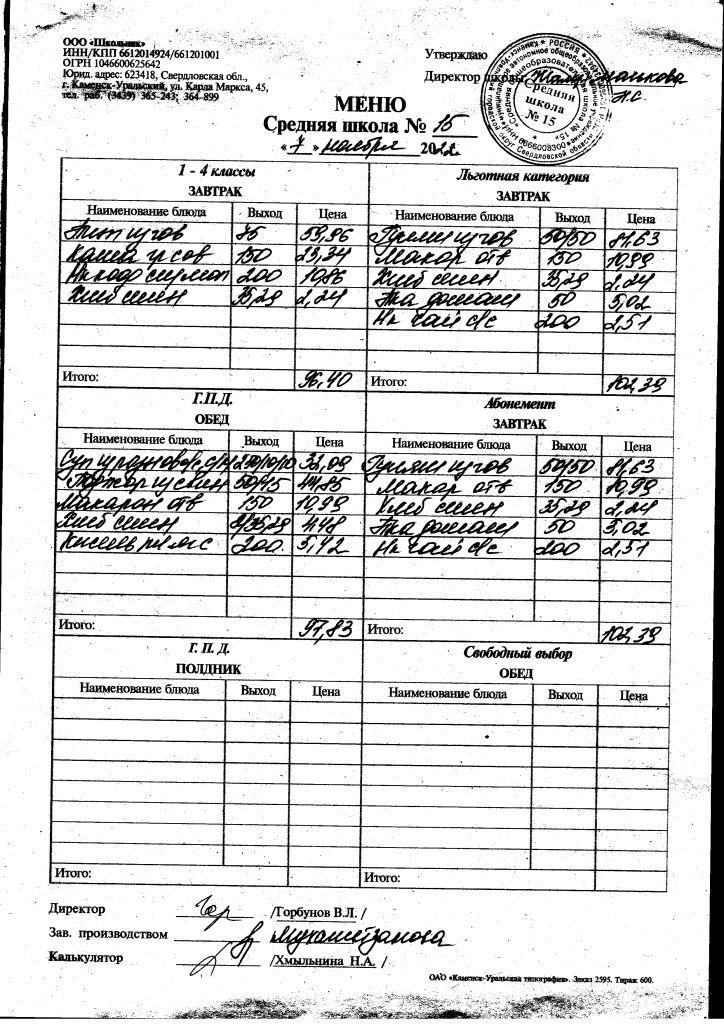 ООО «Школьник»
ИНН/КПП 6612014924/661201001
ОГРН 1046600625642
Юрид. адрес: 623418, Свердловская обл.,
г. Каменск-Уральский, ул. Карла Маркса, 45,
тел. раб. (3439) 365-243; 364-899
Утверждаю
Директор школы
Средняя школа № 15
МЕНЮ
Средняя школа № 15
« 7 » ноября 2022
1 - 4 классы
ЗАВТРАК
Наименование блюда Выход Цена
75 59,96
Каша 150 23,34
200 10,86
Хлеб 35,29 2,24
Итого: 96,40
Льготная категория
ЗАВТРАК
Наименование блюда Выход Цена
Гуляш 50/50 81,63
Макар отв 150 10,99
Хлеб 35,29 2,24
50 5,02
Нк чай с/с 200 2,51
Итого: 102,39
Г.П.Д.
ОБЕД
Наименование блюда Выход Цена
Суп 250/10/10 32,09
50/75 44,85
Макарон отв 150 10,99
Хлеб 4,48
Кисель 200 5,42
Итого: 97,83
Абонемент
ЗАВТРАК
Наименование блюда Выход Цена
Гуляш 50/50 81,63
Макар отв 150 10,99
Хлеб 35,29 2,24
50 5,02
Нк чай с/с 200 2,51
Итого: 102,39
Г. П. Д.
ПОЛДНИК
Наименование блюда Выход Цена
Итого:
Свободный выбор
ОБЕД
Наименование блюда Выход Цена
Итого:
Директор /Горбунов В.Л. /
Зав. производством Мухаметзанова
Калькулятор /Хмыльнина Н.А. /
ОАО «Каменск-Уральская типография». Заказ 2595. Тираж 600.